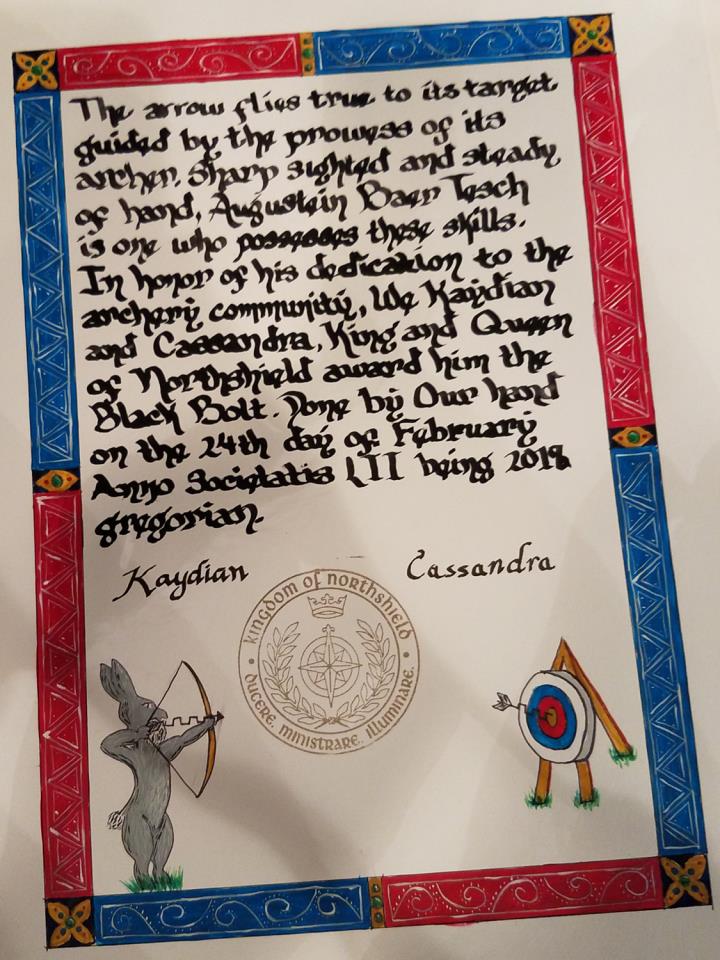 The arrow flies true to its target
guided by the prowess of its
archer. Sharp sighted and steady
of hand, Augustein Baer Tesch
is one who possesses these skills.
In honor of his dedication to the
archery community, We Kaydian
and Cassandra, King and Queen
of Northshield award him the
Black Bolt. Done by Our hand
on the 24th day of February
Anno Societatis LII being 2018
gregorian.
Kaydian
Cassandra
kingdom of northshield
ducere. ministrare. illuminare.